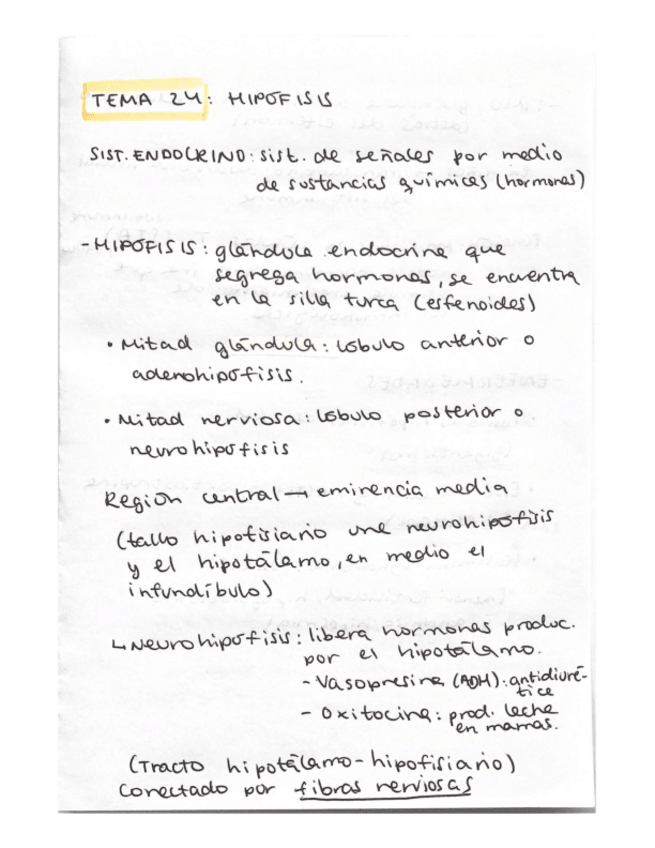 TEMA 24: HIPÓFISIS
SIST. ENDOCRINO: sist. de señales por medio
de sustancias químicas (hormonas)
-HIPÓFISIS: glándula endocrina que
segrega hormonas, se encuentra
en la silla turca (esfenoides)
• Mitad glándula: lóbulo anterior o
adenohipófisis.
• Mitad nerviosa: lóbulo posterior o
neurohipófisis
Región central → eminencia media
(tallo hipofisiario une neurohipófisis
y el hipotálamo, en medio el
infundíbulo)
↳ Neurohipófisis: libera hormonas produc.
por el hipotálamo.
- Vasopresina (ADH): antidiuré-
tica
- Oxitocina: prod. leche
en mamas.
(Tracto hipotálamo-hipofisiario)
Conectado por fibras nerviosas